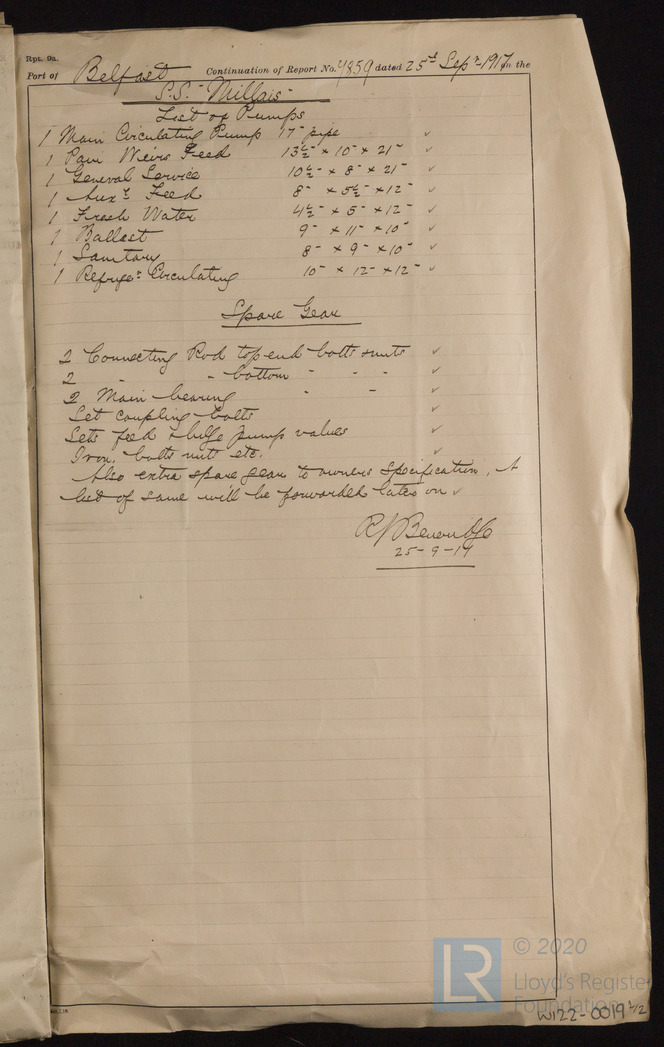 Rpt. 9a.
Port of Belfast Continuation of Report No. 7859 dated 25th Sepr 1917 on the
S.S. "Millais"
List of Pumps
1 Main Circulating Pump 17" pipe ✓
1 Pair Weirs Feed 13½" × 10" × 21" ✓
1 General Service 10½" × 8" × 21" ✓
1 Auxy Feed 8" × 5½" × 12" ✓
1 Fresh Water 4½" × 5" × 12" ✓
1 Ballast 9" × 11" × 10" ✓
1 Sanitary 8" × 9" × 10" ✓
1 Refrigr Circulating 10" × 12" × 12" ✓
Spare Gear
2 Connecting Rod top end bolts & nuts ✓
2 " " bottom " " " ✓
2 Main bearing " " ✓
Set coupling bolts ✓
Sets feed & bilge pump valves ✓
Iron, bolts nuts etc. ✓
Also extra spare gear to owners specification. A
list of same will be forwarded later on ✓
R J Beveridge
25-9-17
LR
© 2020
Lloyd's Register
Foundation
W122-0019 2/2